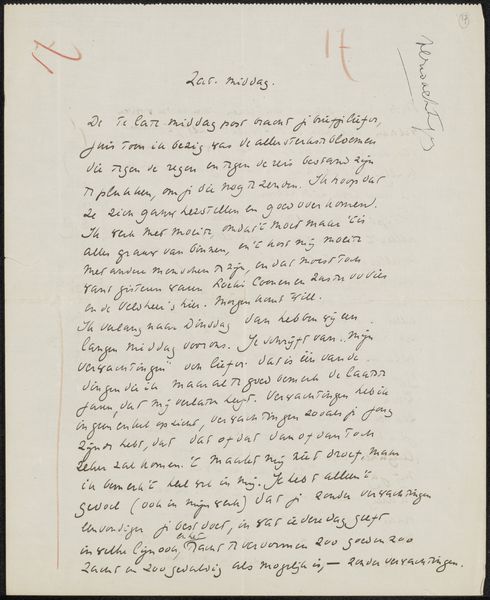 17
71
71
Verwachtings
Zat. middag.
De te late middag post bracht je briefje liefer,
juist toen ik bezig was de allersterkste bloemen
die tegen de regen en tegen de reis bestand zijn
te plukken, om je die nog te zenden. Ik hoop dat
ze zich gauw herstellen en goed overkomen.
Ik werk met moeite, omdat 't moet maar 't is
alles grauw van binnen, en 't kost mij moeite
met andere menschen te zijn, en dat moest toch
want gisteren waren Coenen en zuster
en de Veldheer's hier. Morgen komt
Ik verlang naar Dinsdag dan hebben wij een
langen middag voor ons. Je schrijft van "mijn
verwachtingen" von liefer. Dat is één van de
dingen die ik maar al te goed bemerk de laatste
jaren, dat mij verlaten heeft. Verwachtingen heb ik
in geen enkel opzicht, verwachtingen zooals je jong
zijnde hebt, dat dat of dat dan of dan toch
zeker zal komen. 't maakt mij niet droef, maar
ik bemerk 't heel wel in mij. Je hebt alleen 't
gevoel (ook in mijn werk) dat je zonder verwachtingen
eenvoudiger je best doet, in wat iedere dag geeft
in welke lijn ook, enkel tracht te vervormen zoo goed en zoo
zacht en zoo geduldig als mogelijk is, — zonder verwachtingen.